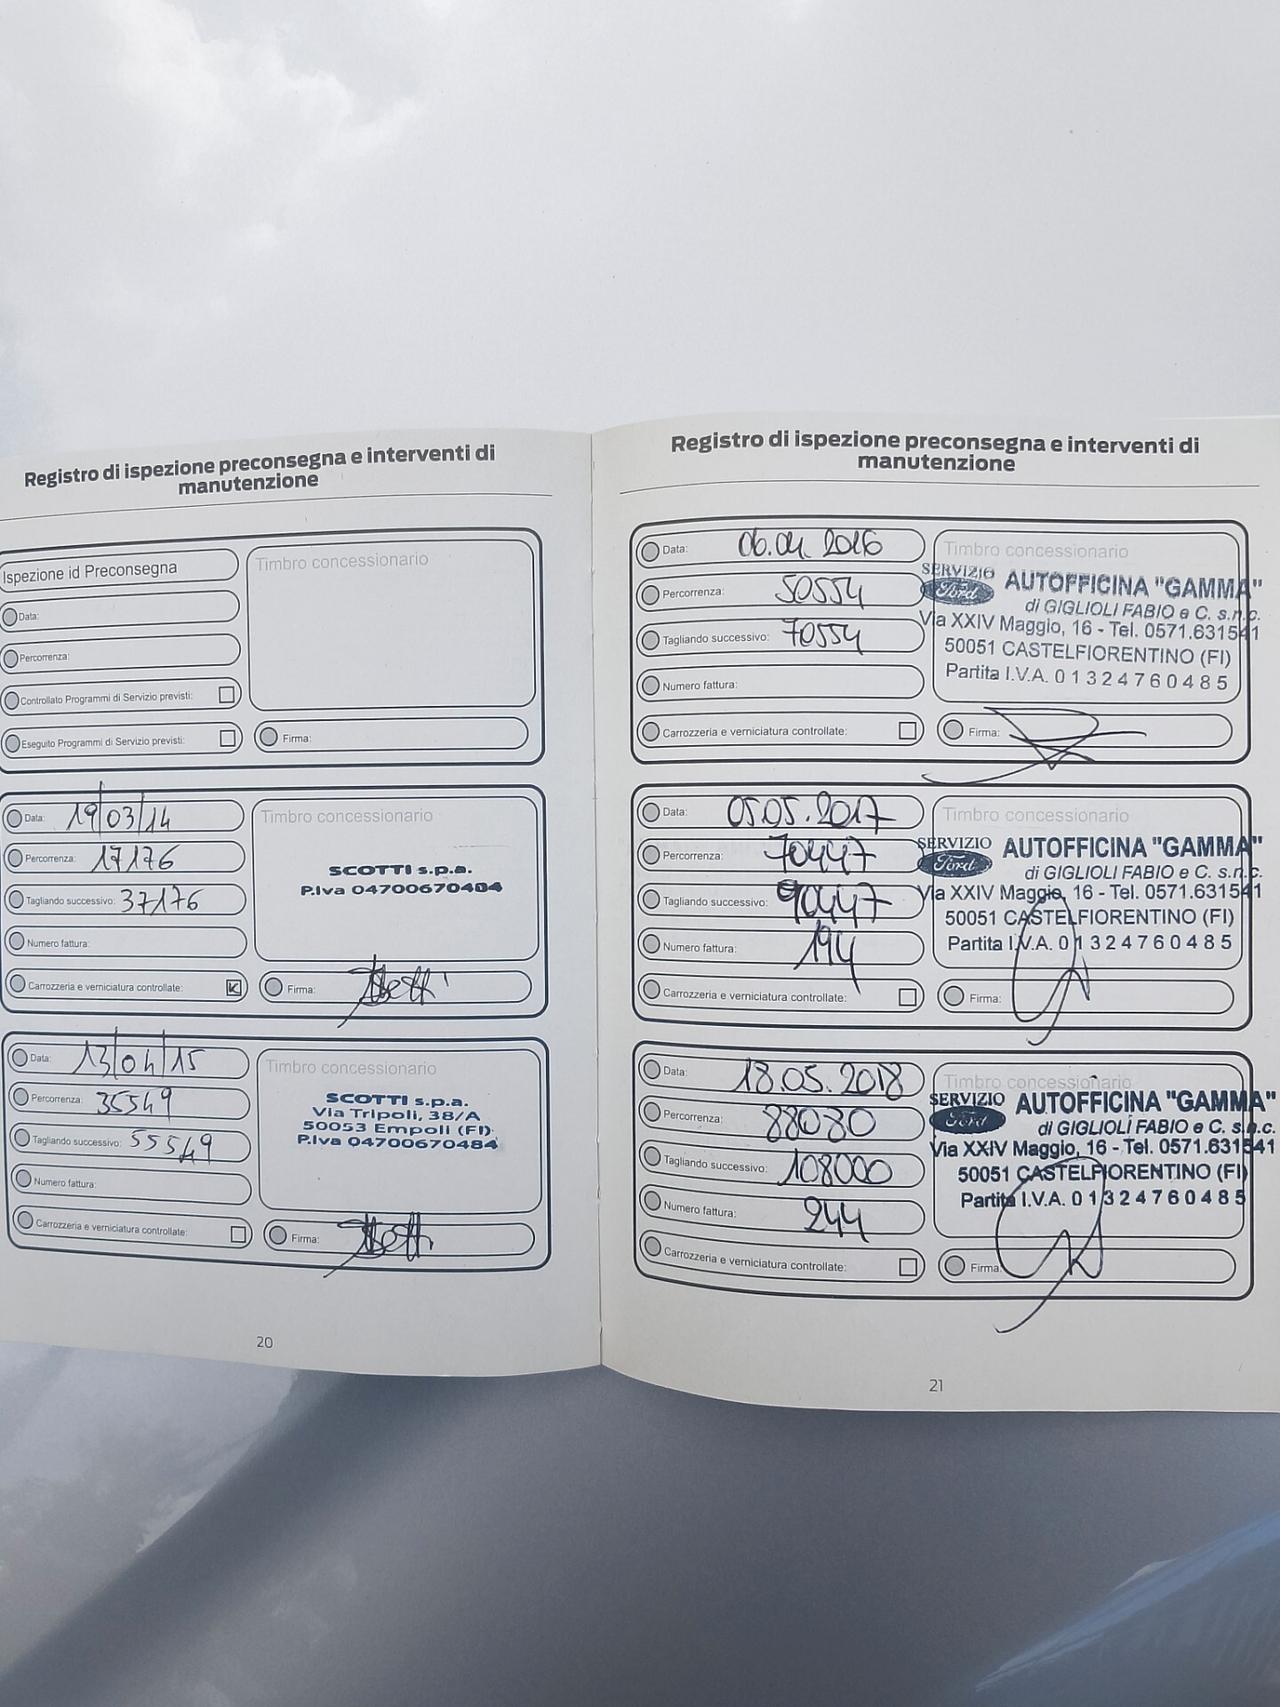 Registro di ispezione preconsegna e interventi di
manutenzione
Ispezione id Preconsegna
Data:
Percorrenza:
Controllato Programmi di Servizio previsti:
Eseguito Programmi di Servizio previsti:
Timbro concessionario
Firma:
Data: 19/03/14
Percorrenza: 17176
Tagliando successivo: 37176
Numero fattura:
Carrozzeria e verniciatura controllate:
Timbro concessionario
SCOTTI s.p.a.
P.Iva 04700670484
Firma:
Data: 13/04/15
Percorrenza: 35549
Tagliando successivo: 55549
Numero fattura:
Carrozzeria e verniciatura controllate:
Timbro concessionario
SCOTTI s.p.a.
Via Tripoli, 38/A
50053 Empoli (FI)
P.Iva 04700670484
Firma:
20
Registro di ispezione preconsegna e interventi di
manutenzione
Data: 06.04.2016
Percorrenza: 50554
Tagliando successivo: 70554
Numero fattura:
Carrozzeria e verniciatura controllate:
Timbro concessionario
SERVIZIO Ford AUTOFFICINA "GAMMA"
di GIGLIOLI FABIO e C. s.n.c.
Via XXIV Maggio, 16 - Tel. 0571.631541
50051 CASTELFIORENTINO (FI)
Partita I.V.A. 01324760485
Firma:
Data: 05.05.2017
Percorrenza: 70447
Tagliando successivo: 90447
Numero fattura: 194
Carrozzeria e verniciatura controllate:
Timbro concessionario
SERVIZIO Ford AUTOFFICINA "GAMMA"
di GIGLIOLI FABIO e C. s.n.c.
Via XXIV Maggio, 16 - Tel. 0571.631541
50051 CASTELFIORENTINO (FI)
Partita I.V.A. 01324760485
Firma:
Data: 18.05.2018
Percorrenza: 88080
Tagliando successivo: 108000
Numero fattura: 244
Carrozzeria e verniciatura controllate:
Timbro concessionario
SERVIZIO Ford AUTOFFICINA "GAMMA"
di GIGLIOLI FABIO e C. s.n.c.
Via XXIV Maggio, 16 - Tel. 0571.631541
50051 CASTELFIORENTINO (FI)
Partita I.V.A. 01324760485
Firma:
21